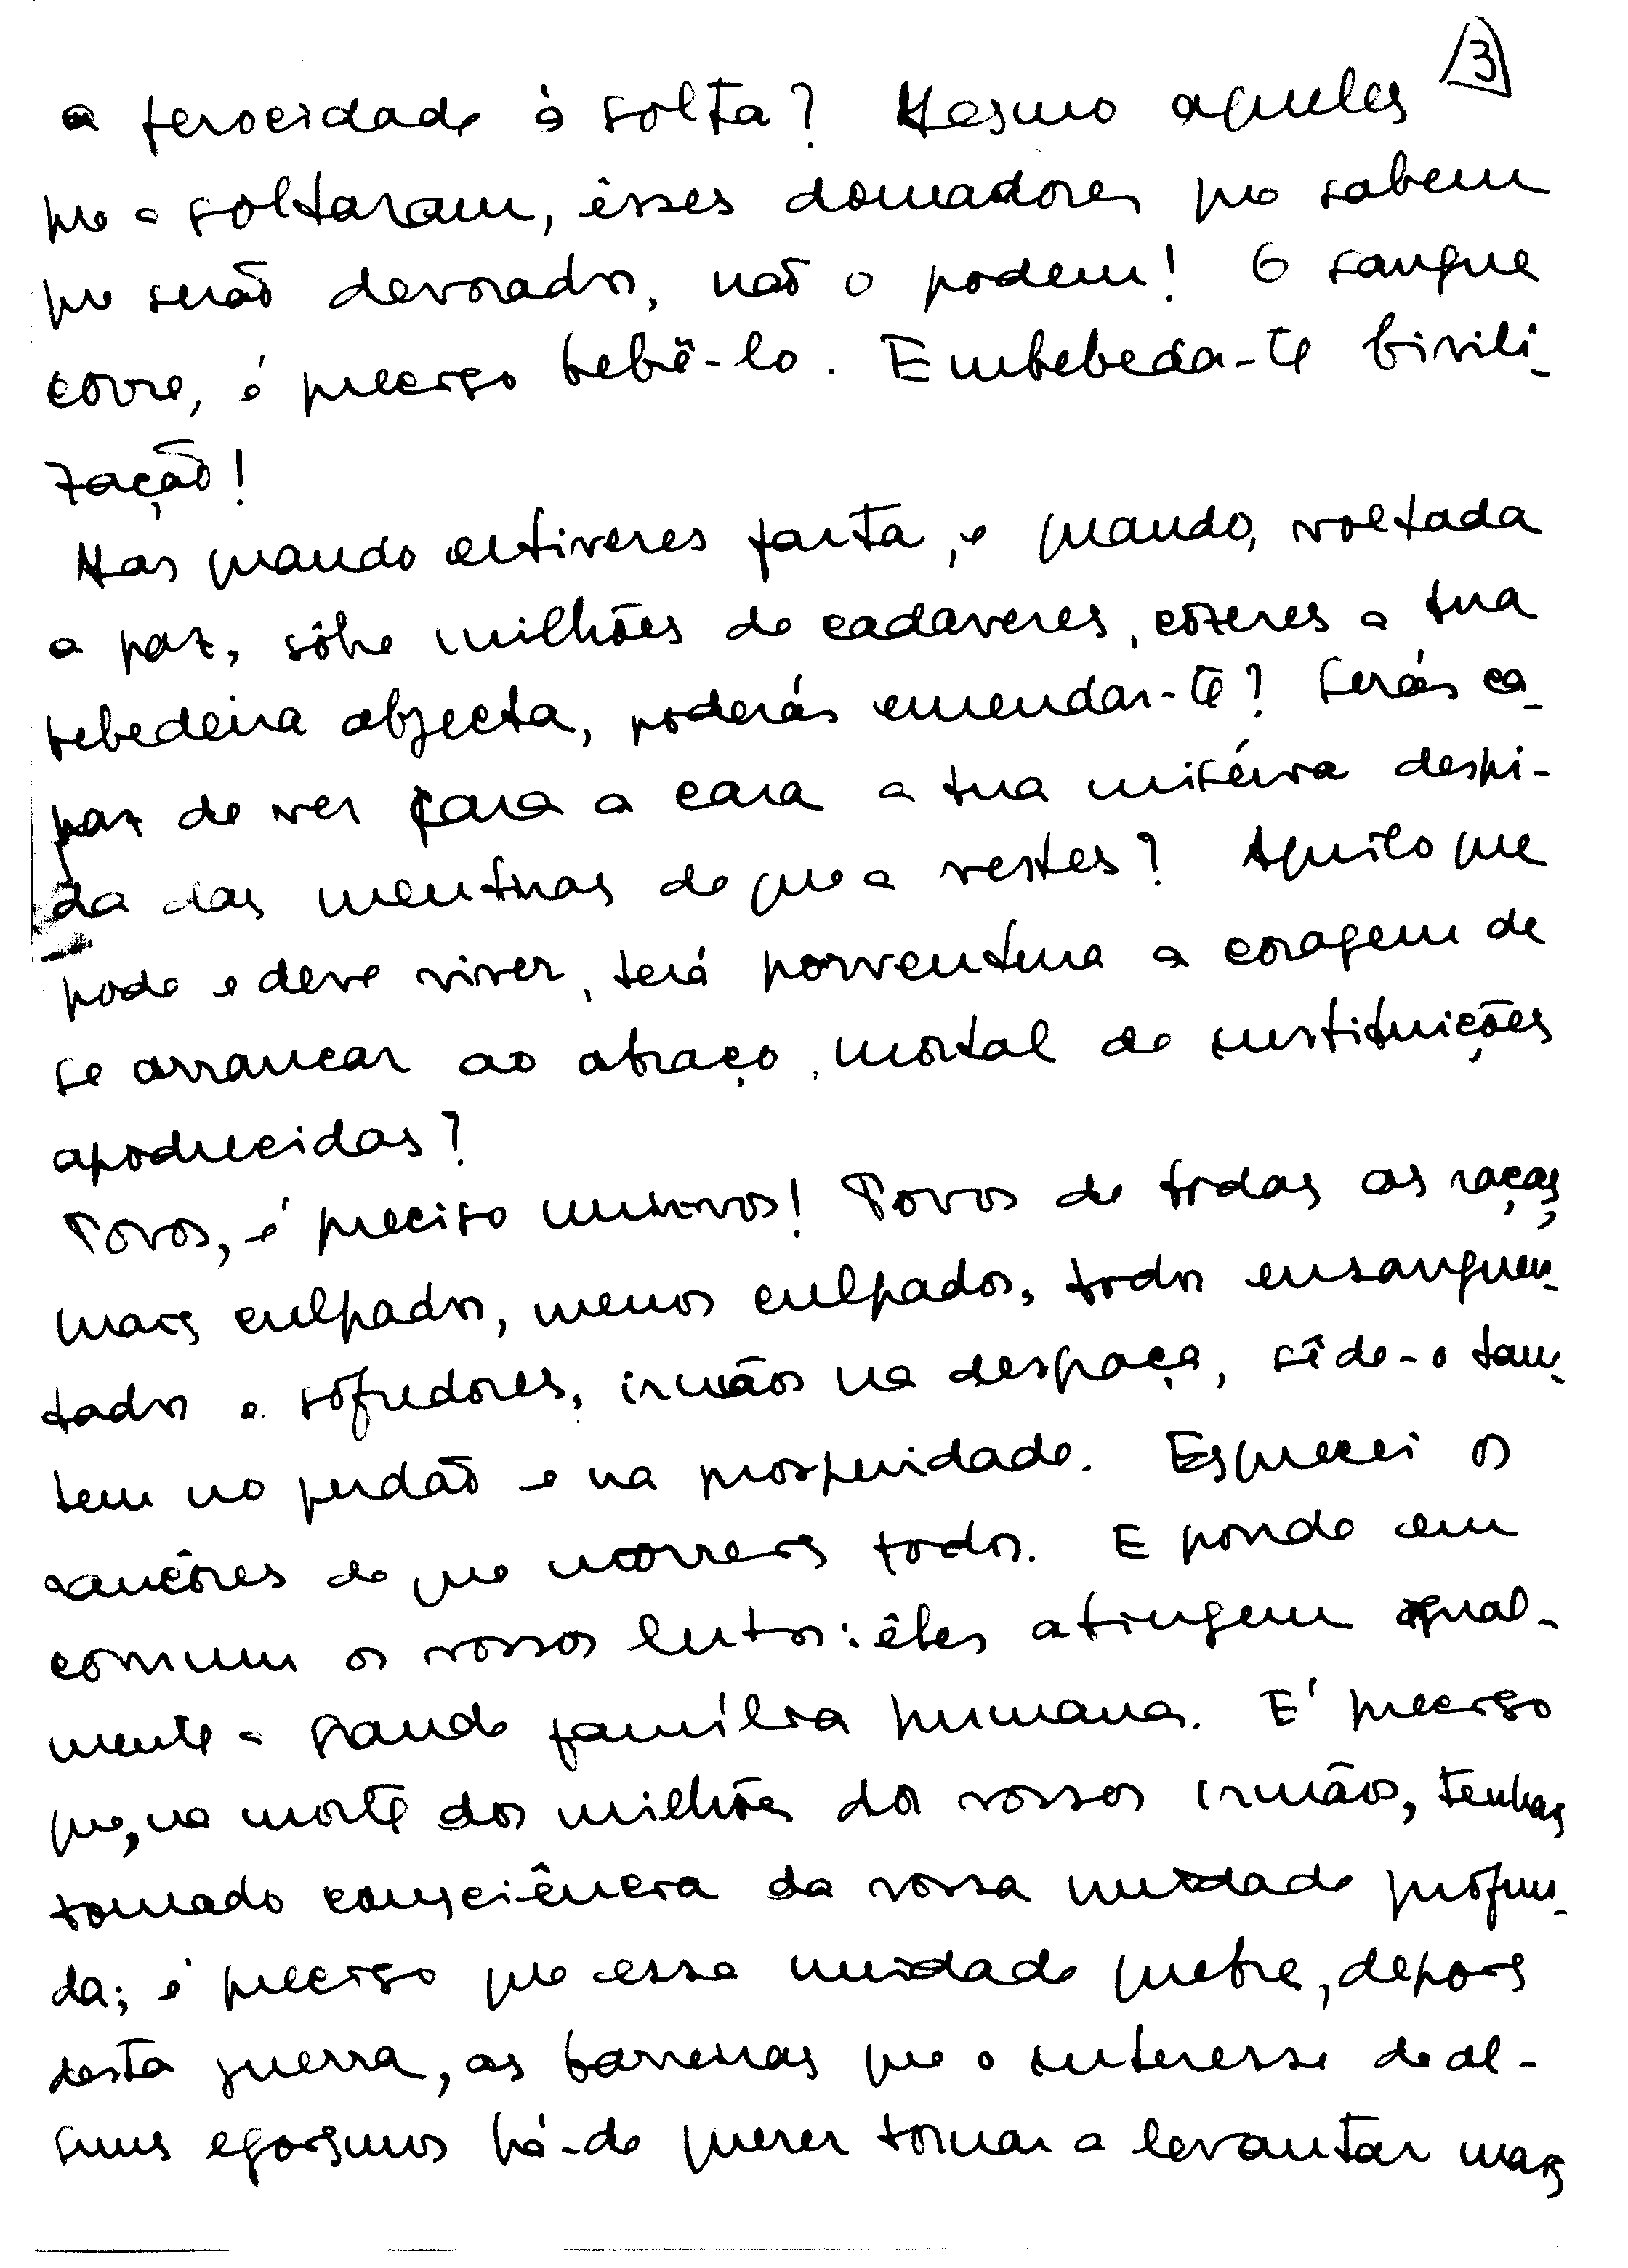 3
a ferocidade à solta? Mesmo aqueles
que a soltaram, êsses domadores que sabem
que serão devorados, não o podem! O sangue
corre, é preciso bebê-lo. Embebeda-te Civili-
zação!
Mas quando estiveres farta, e quando, voltada
a paz, sôbre milhões de cadaveres, cozeres a tua
bebedeira abjecta, poderás emendar-te? Serás ca-
paz de ver cara a cara a tua miséria despi-
da das mentiras de que a vestes? Aquilo que
pode e deve viver, terá porventura a coragem de
se arrancar ao abraço mortal de instituições
apodrecidas?
Povos, é preciso unir-vos! Povos de todas as raças,
mais culpados, menos culpados, todos ensanguen-
tados e sofredores, irmãos na desgraça, sêde-o tam-
bem no perdão e na prosperidade. Esquecei os
rancôres de que morreis todos. E ponde em
comum os vossos lutos: êles atingem igual-
mente a grande família humana. E' preciso
que, na morte dos milhões dos vossos irmãos, tenhas
tomado consciência da vossa unidade profun-
da; é preciso que essa unidade quebre, depois
desta guerra, as barreiras que o interesse de al-
guns egoismos há-de querer tornar a levantar mais